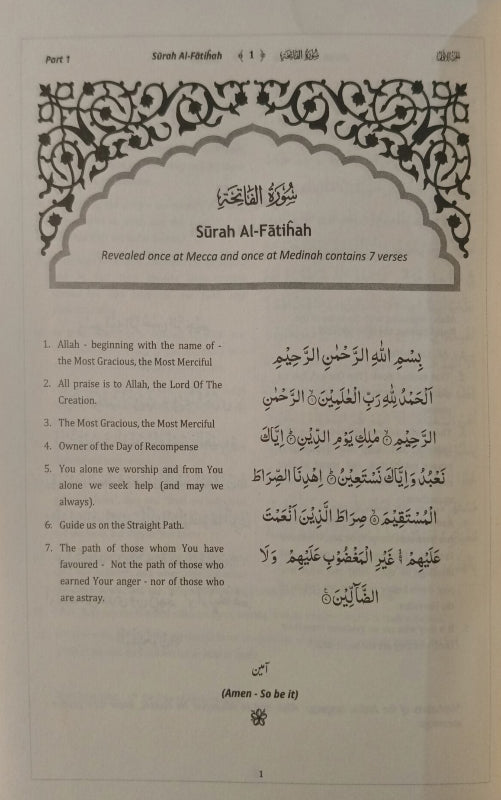 Part 1
Sūrah Al-Fātiĥah ﴾ 1 ﴿ سُوْرَةُ الْفَاتِحَة
سُوْرَةُ الْفَاتِحَةِ
Sūrah Al-Fātiĥah
Revealed once at Mecca and once at Medinah contains 7 verses
1. Allah - beginning with the name of -
the Most Gracious, the Most Merciful
2. All praise is to Allah, the Lord Of The
Creation.
3. The Most Gracious, the Most Merciful
4. Owner of the Day of Recompense
5. You alone we worship and from You
alone we seek help (and may we
always).
6. Guide us on the Straight Path.
7. The path of those whom You have
favoured - Not the path of those who
earned Your anger - nor of those who
are astray.
بِسْمِ اللّٰهِ الرَّحْمٰنِ الرَّحِيْمِ
اَلْحَمْدُ لِلّٰهِ رَبِّ الْعٰلَمِيْنَ ۙ الرَّحْمٰنِ
الرَّحِيْمِ ۙ مٰلِكِ يَوْمِ الدِّيْنِ ؕ اِيَّاكَ
نَعْبُدُ وَاِيَّاكَ نَسْتَعِيْنُ ؕ اِهْدِنَا الصِّرَاطَ
الْمُسْتَقِيْمَ ۙ صِرَاطَ الَّذِيْنَ اَنْعَمْتَ
عَلَيْهِمْ ۙ غَيْرِ الْمَغْضُوْبِ عَلَيْهِمْ وَلَا
الضَّآلِّيْنَ
آمین
(Amen - So be it)
1